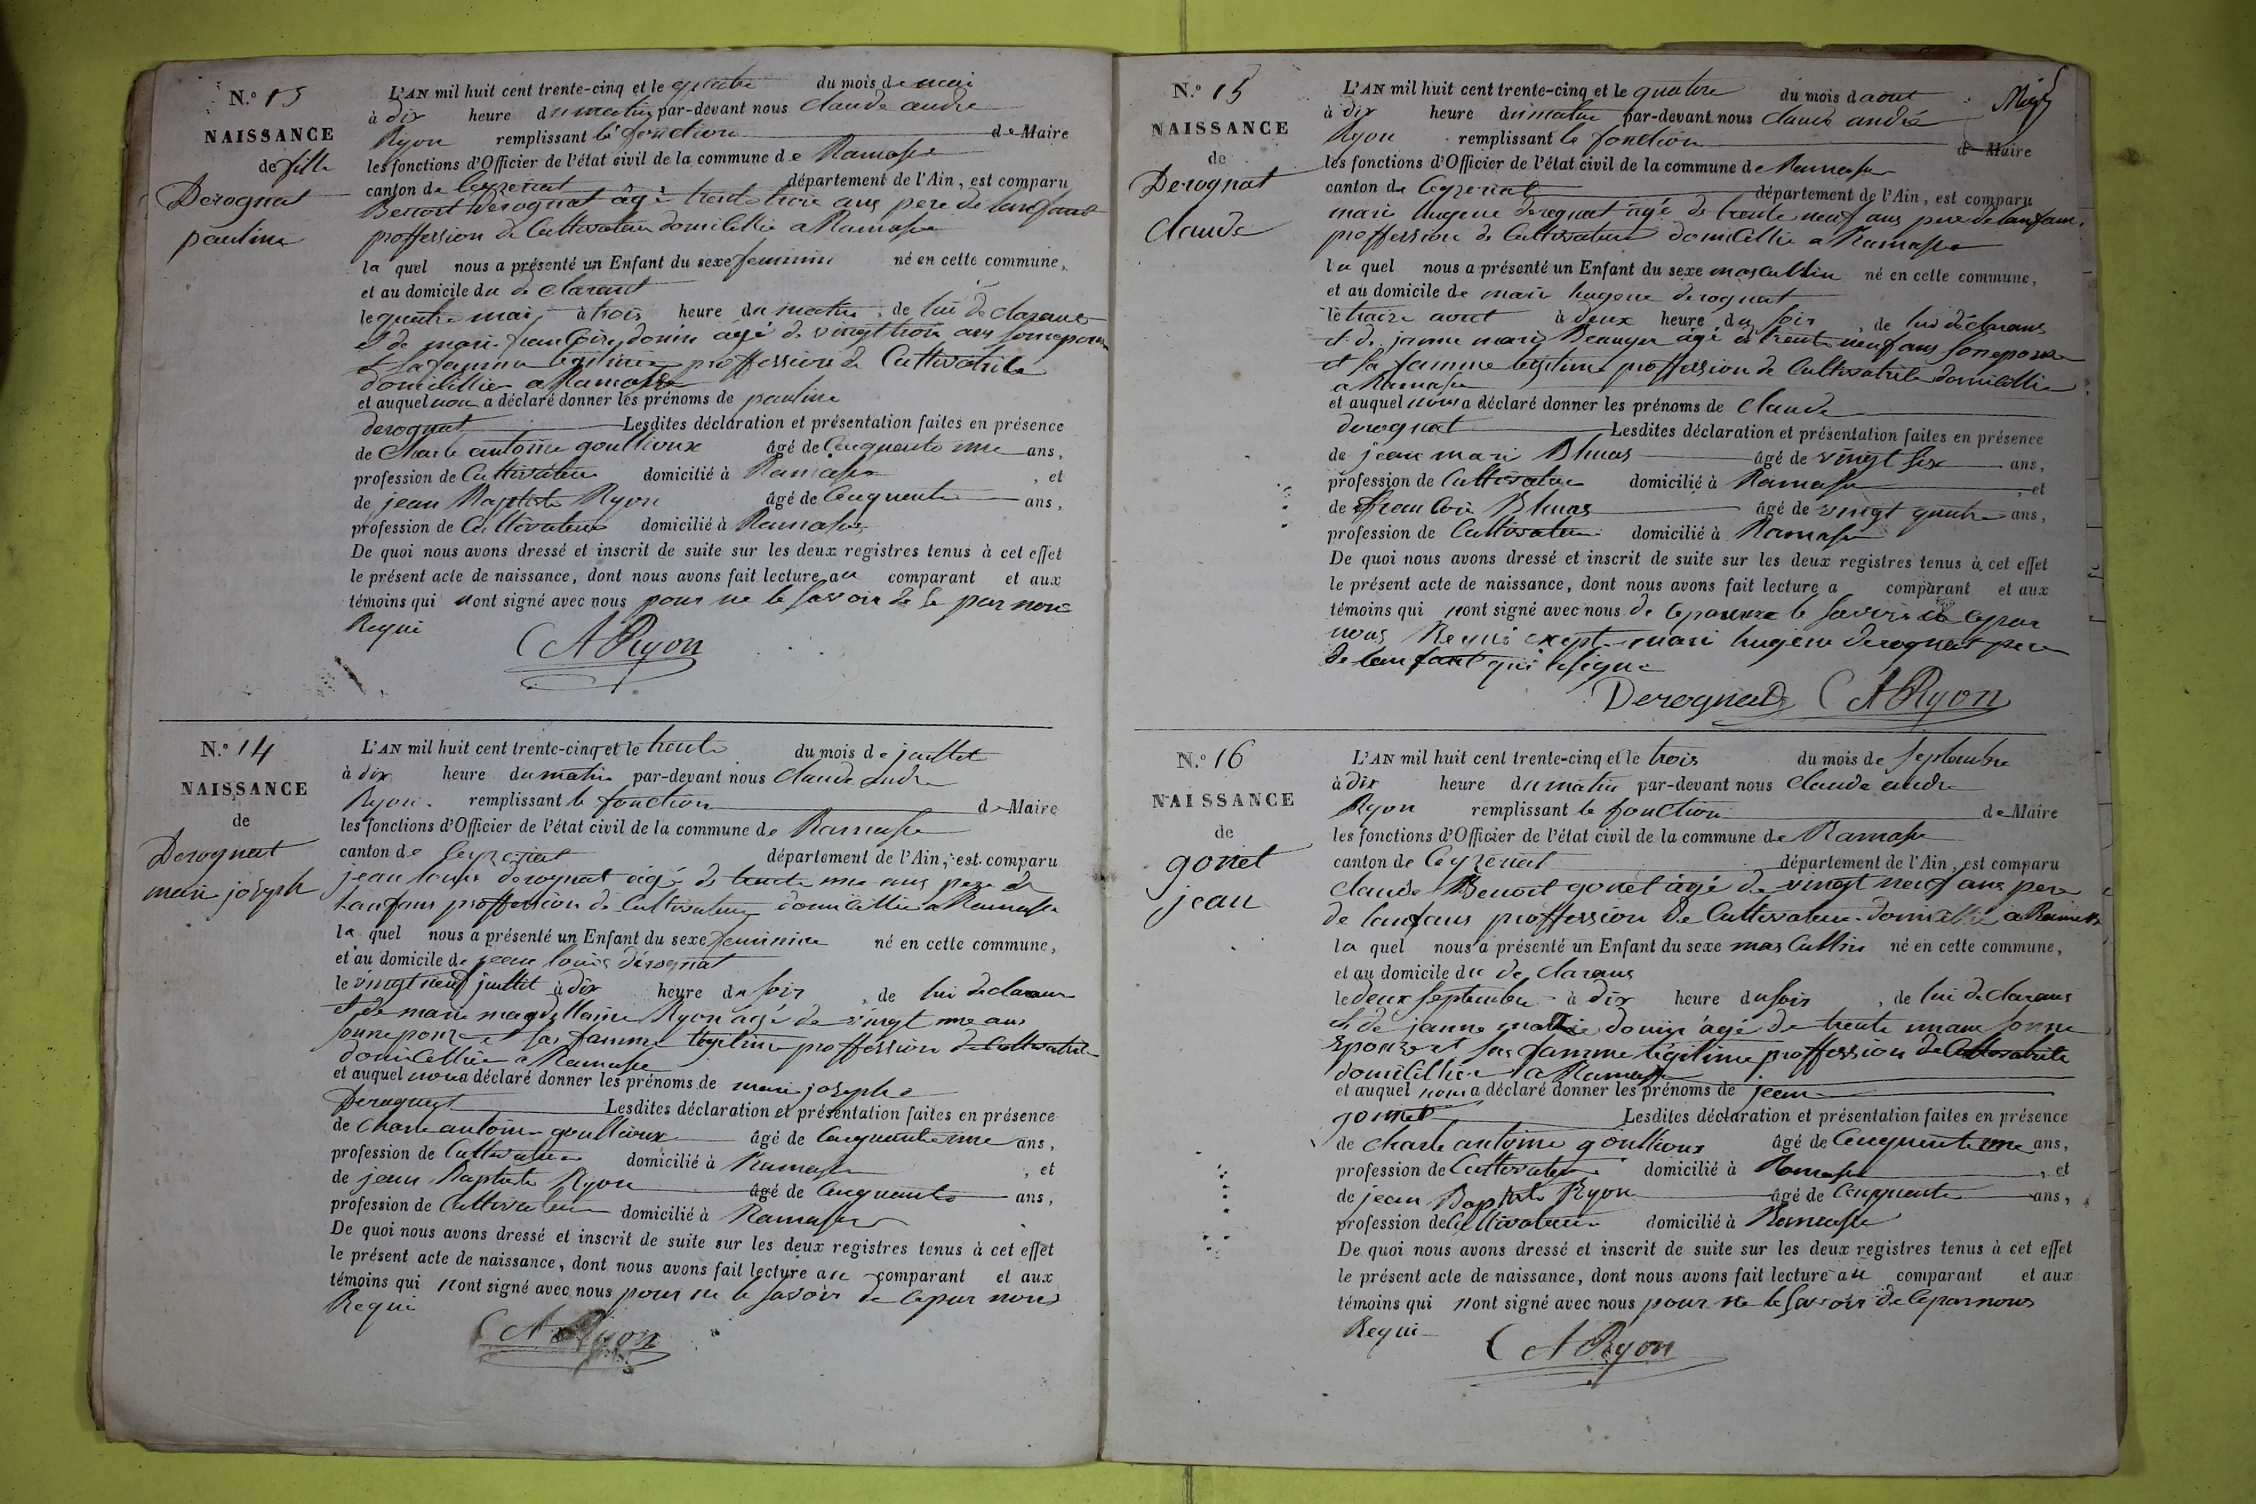 N.º 13
NAISSANCE
de fille
Derognat
pauline
L'AN mil huit cent trente-cinq et le quatre du mois de mai
à dix heure du matin par-devant nous claude andre
Ryon remplissant le fonction de Maire
les fonctions d'Officier de l'état civil de la commune de Ramasse
canton de Ceyzeriat département de l'Ain, est comparu
Benoit Derognat âgé trente trois ans pere de lanfant
proffession de Cultivateur domicillie a Ramasse
la quel nous a présenté un Enfant du sexe feminin né en cette commune,
et au domicile du de clarant
le quatre mai à trois heure du matin, de lui de clarant
et de marie domin âgé de vingt trois ans son epouse
et sa famme legitime proffession de Cultivatrice
domicillie a Ramasse
et auquel nous a déclaré donner les prénoms de pauline
derognat Lesdites déclaration et présentation faites en présence
de Charle antoine goullioux âgé de Cinquante une ans,
profession de Cultivateur domicilié à Ramasse, et
de jean Baptiste Ryon âgé de Cinquante ans,
profession de Cultivateur domicilié à Ramasse
De quoi nous avons dressé et inscrit de suite sur les deux registres tenus à cet effet
le présent acte de naissance, dont nous avons fait lecture au comparant et aux
témoins qui nont signé avec nous pour ne le savoir de se par nous
Requi
CA Ryon
N.º 14
NAISSANCE
de
Derognat
marie joseph
L'AN mil huit cent trente-cinq et le trente du mois de juillet
à dix heure du matin par-devant nous claude andre
Ryon remplissant le fonction de Maire
les fonctions d'Officier de l'état civil de la commune de Ramasse
canton de Ceyzeriat département de l'Ain, est comparu
jean louis derognat âgé de trente une ans pere de
lanfans proffession de Cultivateur domicillie a Ramasse
la quel nous a présenté un Enfant du sexe feminine né en cette commune,
et au domicile de jean louis derognat
le vingt neuf juillet à dix heure du soir, de lui declarans
et de marie magdellaine Ryon âgé de vingt une ans
sonne pouze et sas famme legitime proffession de Cultivatrice
domicillie a Ramasse
et auquel nous a déclaré donner les prénoms de marie josephe
Derognat Lesdites déclaration et présentation faites en présence
de Charle antoine goullioux âgé de Cinquante une ans,
profession de Cultivateur domicilié à Ramasse, et
de jean Baptiste Ryon âgé de Cinquante ans,
profession de Cultivateur domicilié à Ramasse
De quoi nous avons dressé et inscrit de suite sur les deux registres tenus à cet effet
le présent acte de naissance, dont nous avons fait lecture au comparant et aux
témoins qui nont signé avec nous pour ne le savoir de Ce par nous
Requi
CA Ryon
N.º 15
NAISSANCE
de
Derognat
claude
L'AN mil huit cent trente-cinq et le quatre du mois d aout
à dix heure du matin par-devant nous claude andré
Ryon remplissant le fonction de Maire
les fonctions d'Officier de l'état civil de la commune de Ramasse
canton de Ceyzeriat département de l'Ain, est comparu
marie hugene derognat âgé de trente neuf ans pere de lanfant
proffession de Cultivateur domicillie a Ramasse
la quel nous a présenté un Enfant du sexe mascullin né en cette commune,
et au domicile de marie hugene derognat
le aout à deux heure du soir, de lui declarans
et de janne marie âgé de trente neuf ans son epouse
et sa famme legitime proffession de Cultivatrice domicillie
a Ramasse
et auquel nous a déclaré donner les prénoms de claude
derognat Lesdites déclaration et présentation faites en présence
de jean marie Bluas âgé de vingt six ans,
profession de Cultivateur domicilié à Ramasse, et
de francois Bluas âgé de vingt quatre ans,
profession de Cultivateur domicilié à Ramasse
De quoi nous avons dressé et inscrit de suite sur les deux registres tenus à cet effet
le présent acte de naissance, dont nous avons fait lecture a comparant et aux
témoins qui nont signé avec nous de le savoir de ce par
nous Requis exept marie hugene derognat pere
de lanfant qui a signe
Derognat CA Ryon
N.º 16
NAISSANCE
de
gonet
jean
L'AN mil huit cent trente-cinq et le trois du mois de septembre
à dix heure du matin par-devant nous claude andre
Ryon remplissant le fonction de Maire
les fonctions d'Officier de l'état civil de la commune de Ramasse
canton de Ceyzeriat département de l'Ain, est comparu
claude Benoit gonet âgé de vingt neuf ans pere
de lanfans proffession de Cultivateur domicillié a Ramasse
la quel nous a présenté un Enfant du sexe mas Cullin né en cette commune,
et au domicile du de clarans
le deux septembre à dix heure du soir, de lui de clarans
et de janne marie domin âgé de trente un ans sonne
Epouze et sas famme legitime proffession de Cultivatrice
domicillie a Ramasse
et auquel nous a déclaré donner les prénoms de jean
gonnet Lesdites déclaration et présentation faites en présence
de charle antoine goullioux âgé de Cinquante une ans,
profession de Cultivateur domicilié à Ramasse, et
de jean Baptiste Ryon âgé de Cinquante ans,
profession de Cultivateur domicilié à Ramasse
De quoi nous avons dressé et inscrit de suite sur les deux registres tenus à cet effet
le présent acte de naissance, dont nous avons fait lecture au comparant et aux
témoins qui nont signé avec nous pour ne le savoir de Ce par nous
Requi
CA Ryon